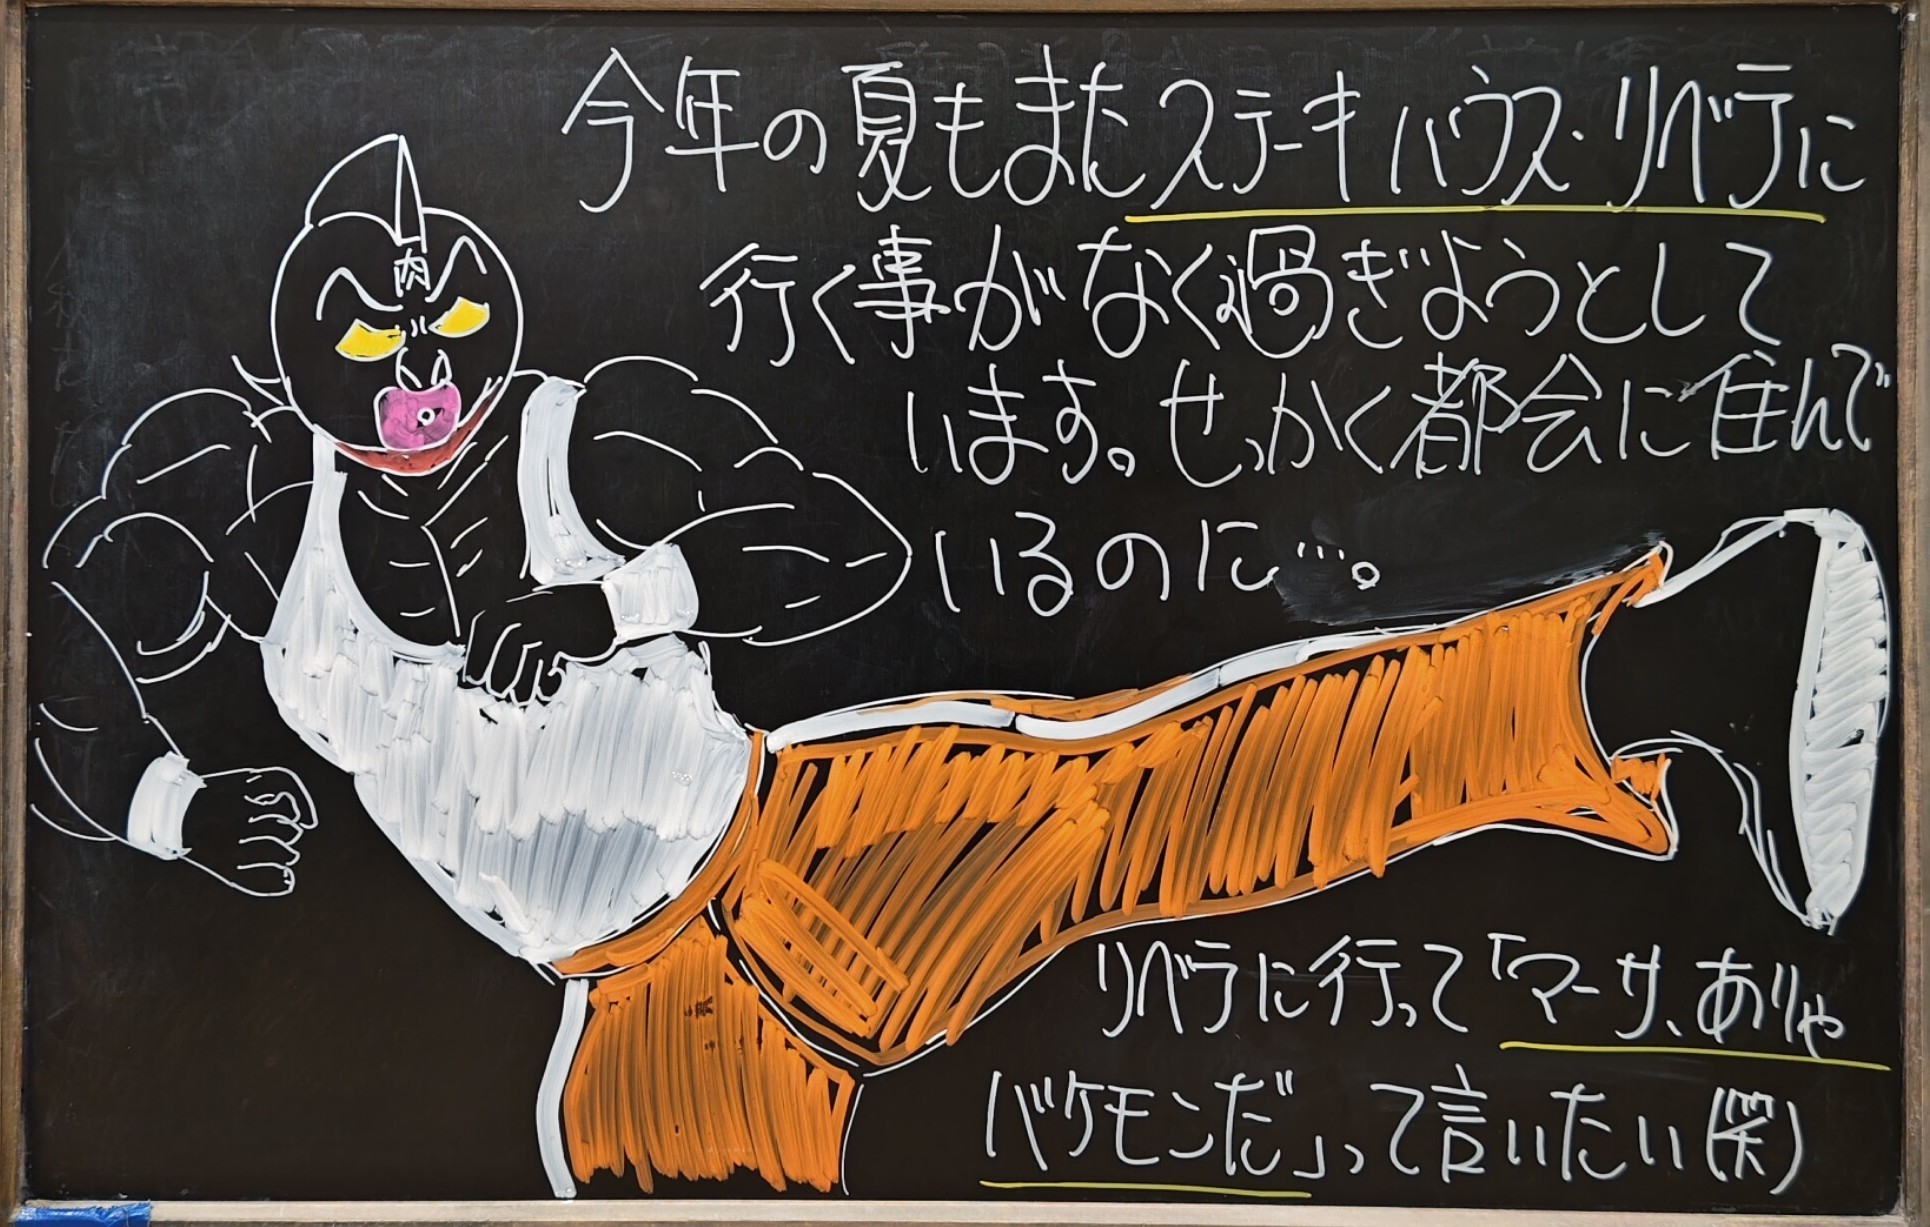 今年の夏もまたステーキハウス・リベラに
行く事がなく過ぎようとして
います。せっかく都会に住んで
いるのに…。
肉
リベラに行って「マーサ、ありゃ
バケモンだ」って言いたい(笑)